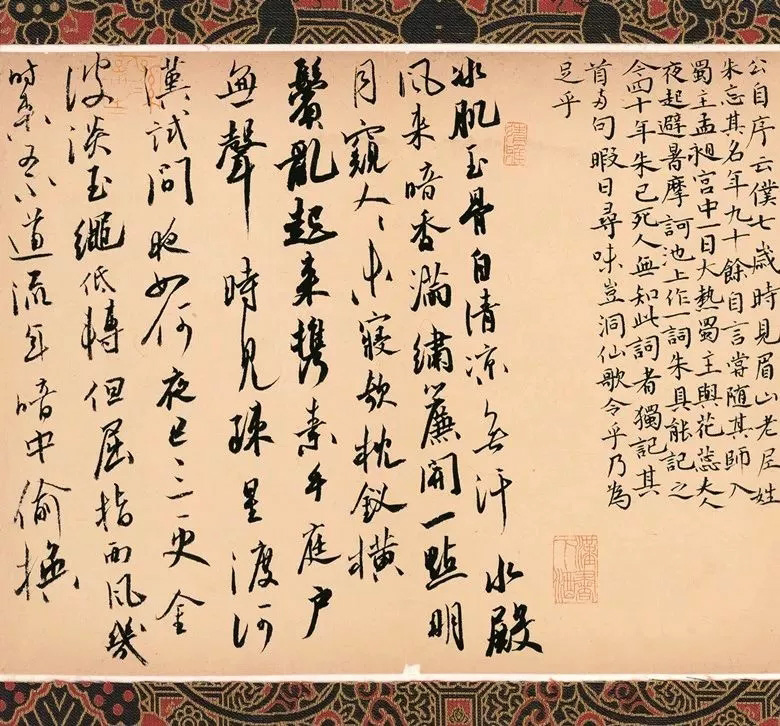 公自序云僕七歲時見眉山老尼姓
朱忘其名年九十餘自言嘗隨其師入
蜀主孟昶宮中一日大熱蜀主與花蕊夫人
夜起避暑摩訶池上作一詞朱具能記之
今四十年朱已死人無知此詞者獨記其
首兩句暇日尋味豈洞仙歌令乎乃為
足乎
冰肌玉骨自清涼無汗水殿
風來暗香滿繡簾開一點明
月窺人〻未寢欹枕釵橫
鬢亂起來攜素手庭户
無聲時見疎星渡河
漢試問夜如何夜已三更金
波淡玉繩低轉但屈指西風幾
時來又不道流年暗中偷換